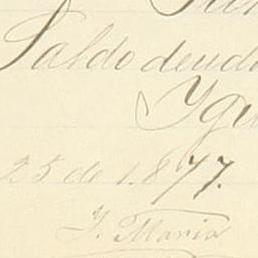 Saldo deudo
Igu
25 de 1.877.
J. Maria